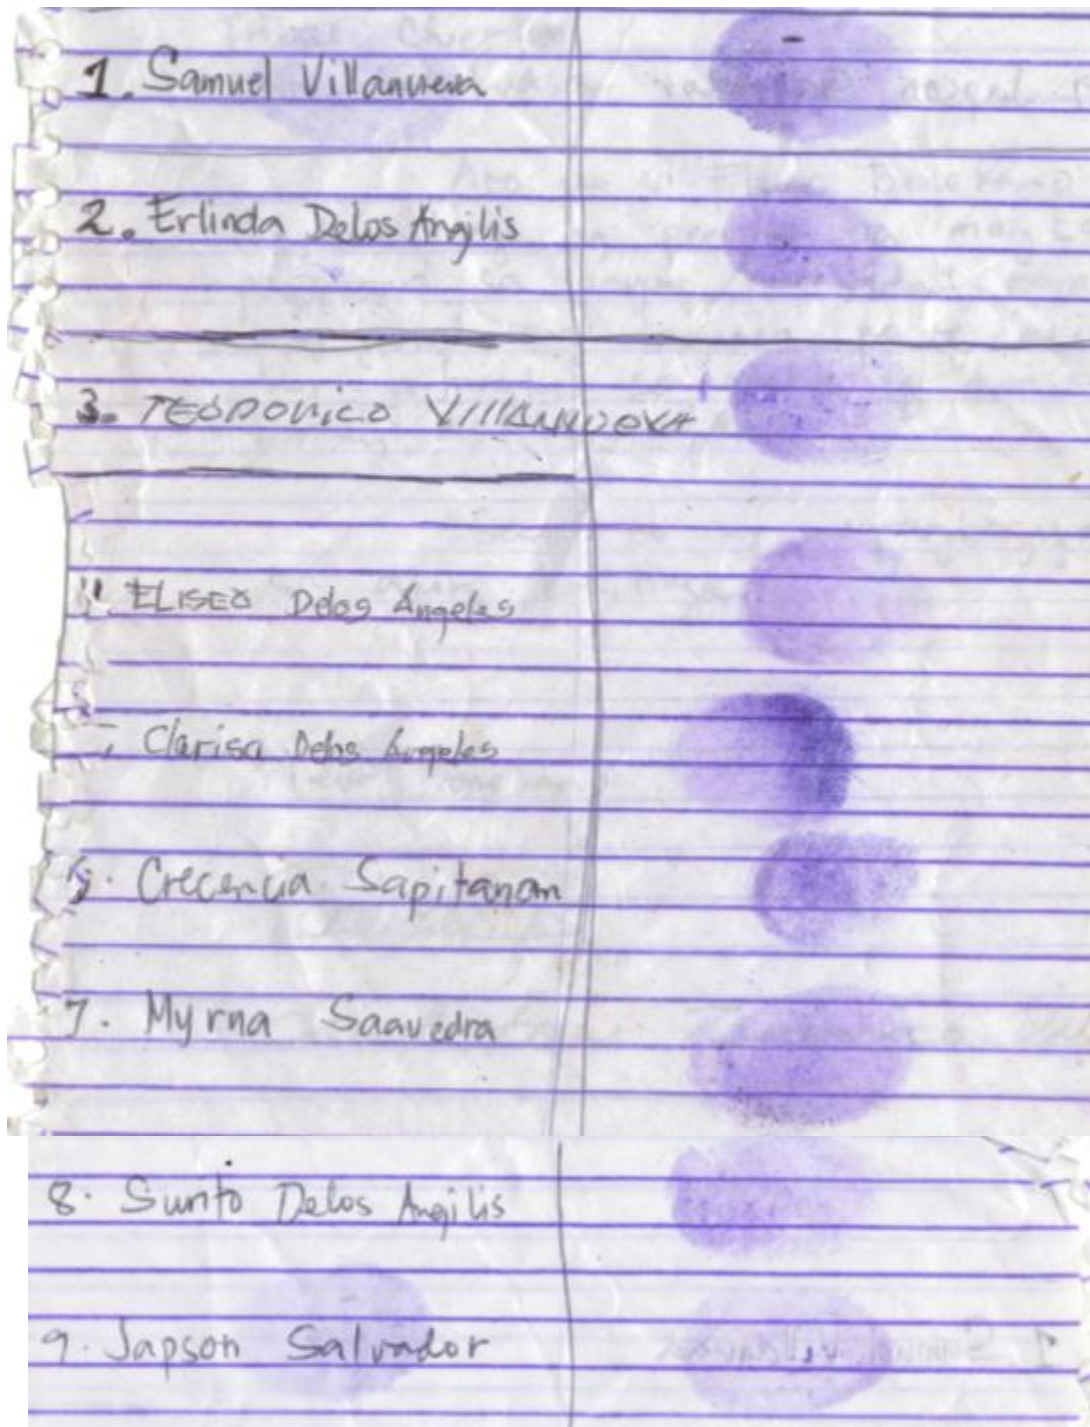 1. Samuel Villanueva
2. Erlinda Delos Angilis
3. TEODORICO VILLANUEVA
4. ELISEO Delos Angeles
Clarisa Delos Angeles
6. Crecencia Sapitanan
7. Myrna Saavedra
8. Sunito Delos Angilis
9. Japson Salvador